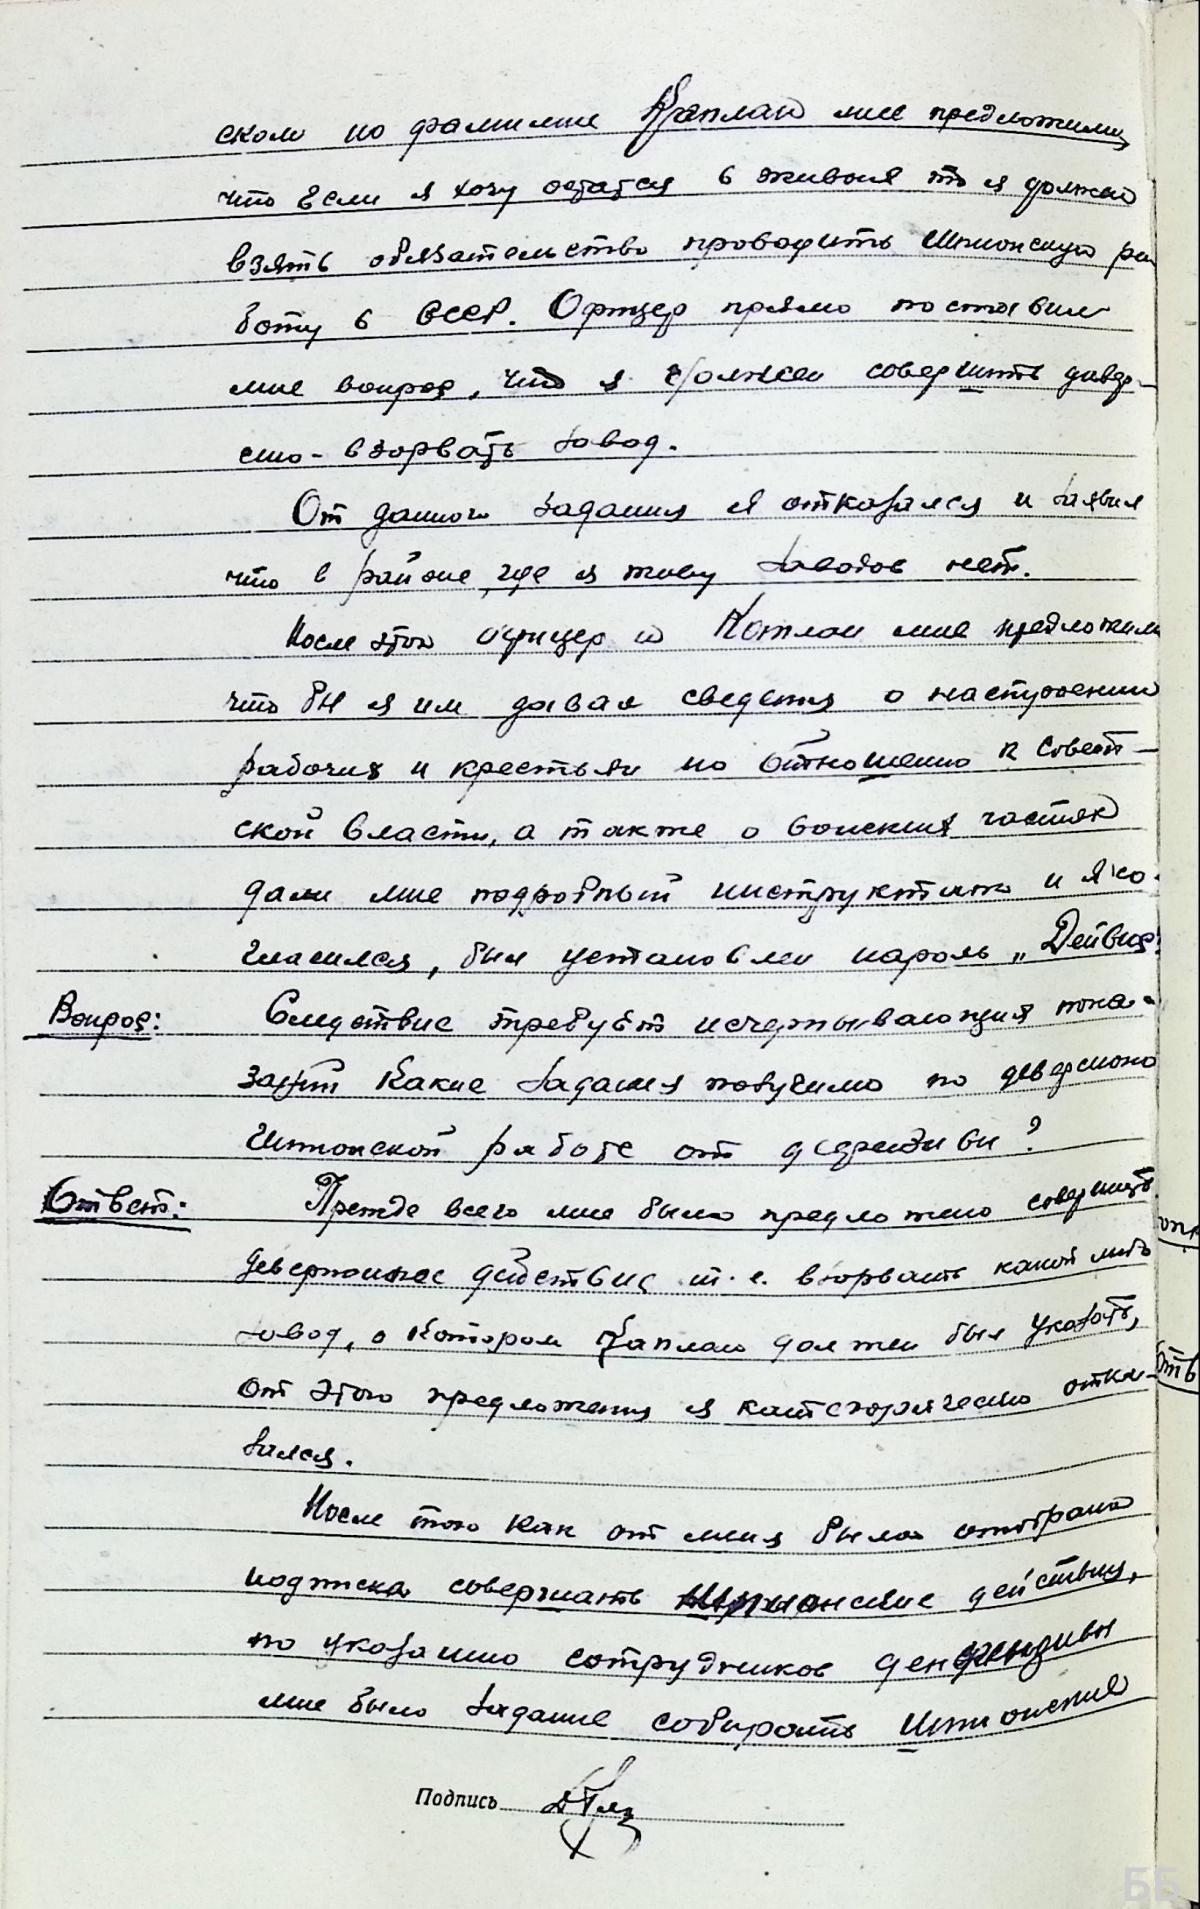 ском по фамилие Каплан мне предложили
что если я хочу остатся в живыя то я должен
взять обязательство проводить шпионскую ра
боту в СССР. Офицер прямо поставил
мне вопрос, что я должен совершить дивер-
сию - взорвать завод.
От данного задания я отказался и заявил
что в районе, где я живу заводов нет.
После этого офицер и Каплан мне предложили
что бы я им давал сведения о настроении
рабочих и крестьян по отношению к совет-
ской власти, а также о воиских частях
дали мне подробный инструктаж и я со-
гласился, был установлен пароль „Дейвис"
Вопрос: Следствие требует исчерпывающия пока-
заний какие задания получило по деверсионо
шпионской работе от дефензивы?
Ответ: Прежде всего мне было предложено совершить
деверсионное действие т. е. взорвать какой либо
завод, о котором Каплан должен был указать,
от этого предложения я категорически отка-
зался.
После того как от меня была отобрана
подписка совершать шпионские действия,
по указанию сотрудников дефензивы
мне было задание собирать шпионские
Подпись
ББ